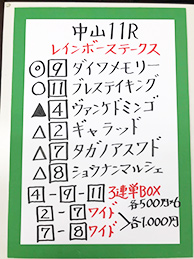 中山11R
レインボーステークス
◎ 9 ダイワメモリー
○ 11 ブレステイキング
▲ 4 ヴァンケドミンゴ
△ 2 ギャラッド
△ 7 タガノアスワド
△ 8 ショウナンマルシェ
4-9-11 3連単BOX 各500円×6
2-7 ワイド
7-8 ワイド > 各1,000円